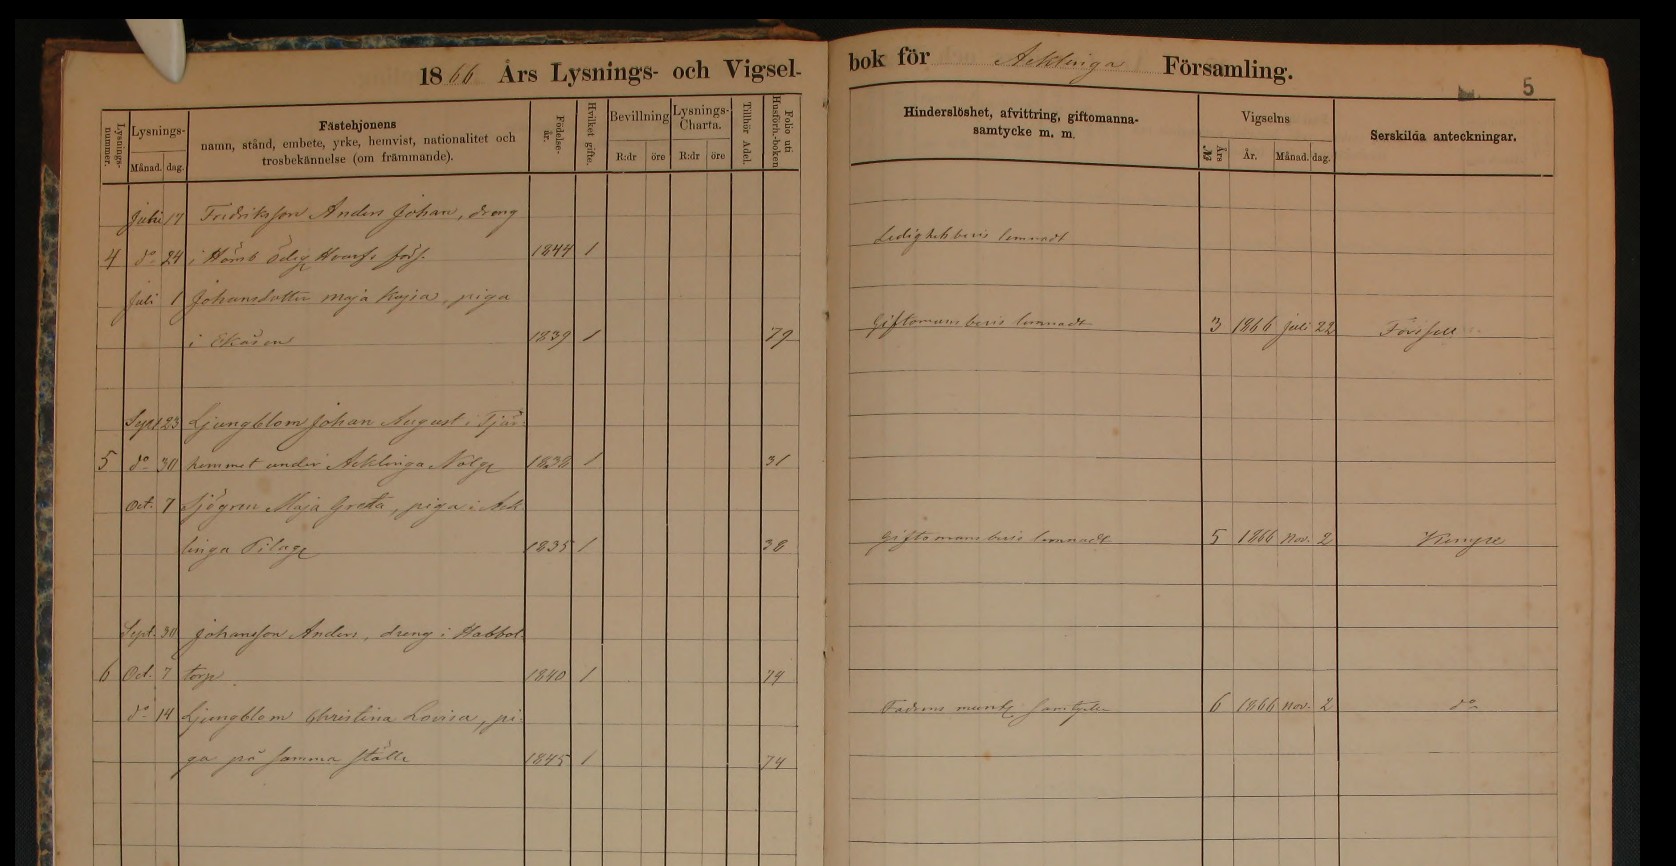 1866 Års Lysnings- och Vigsel-
bok för Acklinga Församling.
5
Lysnings-nummer.
Lysnings-
Månad. dag.
Fästehjonens
namn, stånd, embete, yrke, hemvist, nationalitet och
trosbekännelse (om främmande).
Födelse-år.
Hvilket gifte.
Bevillning
R:dr öre
Lysnings-Charta.
R:dr öre
Tillhör Adel.
Folio uti Husförh.-boken
Hinderslöshet, afvittring, giftomanna-
samtycke m. m.
Vigselns
Års № År. Månad. dag.
Serskilda anteckningar.
17 Fredriksson Anders Johan, dreng
4 do 24 i 1844 1
Ledighetsbevis lemnadt
Juli 1 Johansdotter Maja Kajsa, piga
i Ekåsen 1839 1 79
Giftomans bevis lemnadt 3 1866 juli 22
Sept 23 Ljungblom Johan August, Tjär-
5 do 30 hemmet under Acklinga 1838 1 31
Oct. 7 Sjögren Maja Greta, piga i Ack-
linga 1835 1 38
Giftomans bevis lemnadt 5 1866 nov. 2
Sept. 30 Johansson Anders, dreng i Habbol-
6 Oct. 7 torp 1840 1 74
do 14 Ljungblom Christina Lovisa, pi-
Faderns muntl. samtycke 6 1866 nov. 2 do
ga på samma ställe 1845 1 74